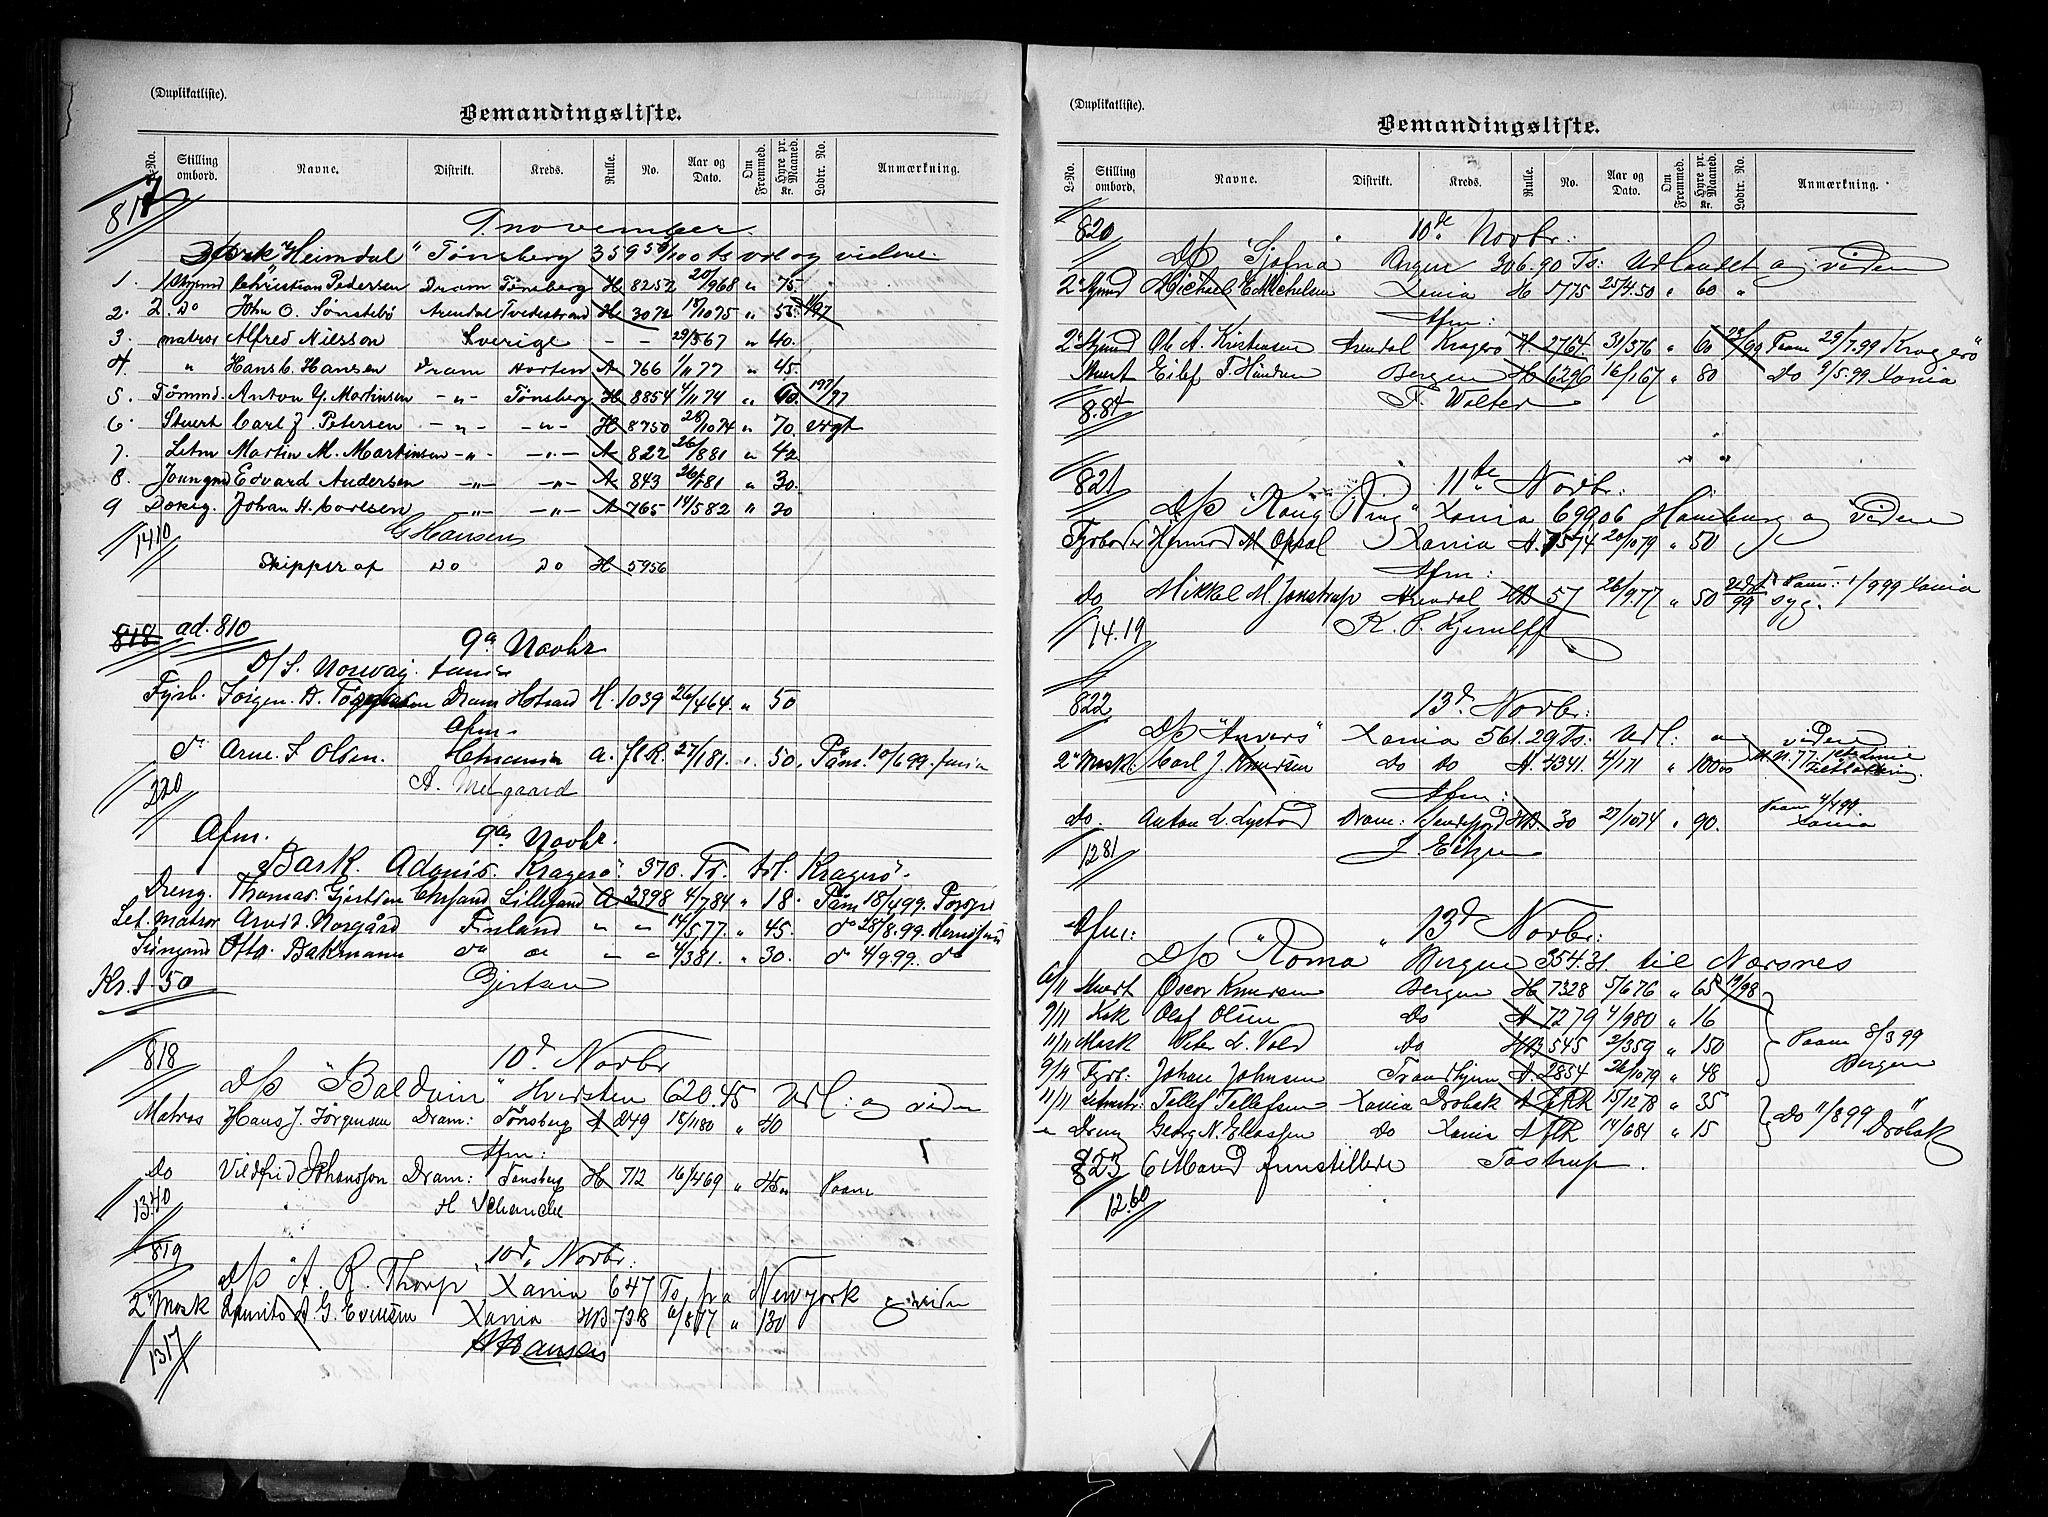 (Duplikatliste).
Bemandingsliste.
L-No. Stilling ombord. Navne. Distrikt. Kreds. Rulle. No. Aar og Dato. Om Fremmed. Hyre pr. Maaned. Kr. Lodtr. No. Anmærkning.
817
9 november
Bark "Heimdal" Tønsberg 359 50/100 ts vol og videre
1. 1 Styrmd Christian Pedersen Dram Tønsberg H 8252 20/968 " 75.
2. 2. Do John O. Sønstebø Arendal Tvedestrand H 3072 18/1075 " 55.
3. matros Alfred Nilsson Sverige - - 29/567 " 40.
4. " Hans C. Hansen Dram Horten A 766 1/1177 " 45.
5. Tømmd Anton G. Martinsen -"- Tønsberg H 8854 4/1174 " 60. 197/97
6. Stuert Carl J. Petersen -"- -"- H 8750 28/1074 " 70. vrgt
7. Letm Martin M. Martinsen -"- -"- A 822 26/881 " 42
8. Joungmd Edvard Andersen -"- -"- A 843 26/181 " 30.
9 Dæksg. Johan H. Carlsen -"- -"- A 765 14/582 " 20
1410 G Hansen
Skipper af Do Do H 5956
818 ad. 810
9a Novbr
D/S. Norway.
Fyrb. Jørgen. A. Dram Holmestrand H. 1039 26/464. " 50
Afm.
do Arne. S Olsen. A. fl R. 27/181. " 50. Påm. 10/699.
220 A. Melgaard
Afm. 9a Novbr.
Bark. Adonis. Kragerø. 370. Ts. til. Kragerø.
Dreng. Thomas. Gjertsen Chrsand Lillesand A 2398 4/784 " 18. Påm 18/499.
Let. matros Arvid. Norgård Finland " " 14/577. " 45. do 28/8.99.
Jüngmd Otto. Bakmann do do " " 4/381. " 30. do 4/999. do
Kr. 1.50 Gjertsen
818 10d Novbr
D/S "Baldvin" 620.45 Udl: og viden
Matros Hans J. Jørgensen Dram: Tønsberg A 249 15/1180 " 40
Afm:
Do Vildfrid Johansson Dram: Tønsberg H 712 16/469 " 45 Paam
1340 H Schanche
819 10d. Novbr:
D/S "A. R. Thorp Xania 647 Ts. fra Newyork og viden
2 Mask A. G. Xania HB 738 " 130
1317 Hansen
(Duplikatliste).
Bemandingsliste.
L-No. Stilling ombord. Navne. Distrikt. Kreds. Rulle. No. Aar og Dato. Om Fremmed. Hyre pr. Maaned. Kr. Lodtr. No. Anmærkning.
820 10de Novbr:
D/S "Sjofna Bergen 306.90 Ts: Udlandet og viden
2 Styrmd Michael E Michelsen Xania H 1775 25/450 " 60 "
Afm:
2 Styrmd Ole A. Kristensen Arendal Kragerø H. 2764. 31/376 " 60 Paam 29/7.99 Kragerø
Stuert Eilef T. Bergen H 6296 16/167 " 80 Do 9/5.99 Xania
8.84 F. Walter
821 11te Novbr:
D/S "Kong Ring" Xania 699.06 Hamburg og viden
Fyrbøder M. Opsal Xania H. 1574 20/1079 " 50
Afm:
Do Mikkel M. Jonstrup Arendal HB 57 26/977 " 50 Udst 99 Paam: syg. 1/999 Xania
14.19 K. P. Kjerulff
822 13d. Novbr:
D/S "Anvers" Xania 561.29 Ts: Udl: og viden
2 Mask. Carl J. Knudsen Do Do H. 4341. 4/171 " 100
Afm:
Do. Anton L. Lystad Dram: Sandefjord HB 30 27/1074 " 90. Paam 4/499 Xania
1281
Afm: 13d Novbr:
D/S "Roma Bergen 354.31. til Norsnes
10/11 Stuert Oscar Knudsen Bergen H 7328 5/676 " 65
9/11 Kok Olaf Olsen Do A 7279 4/980 " 16
11/11 Mask Peter L. Vold Do HB 545 2/359 " 150 Paam 8/3 99 Bergen
9/11 Fyrb: Johan Johnsen Trondhjem A. 2854 26/1079 " 48
11/11 Letmatr: Tellef Tellefsen Xania Drøbak A flR 15/1278 " 35
" Dreng Georg N. Eliassen Do Xania A flR 14/681 " 15 Do 11/899 Drøbak
823 6 Mand frnstillede Tostrup.
12.60